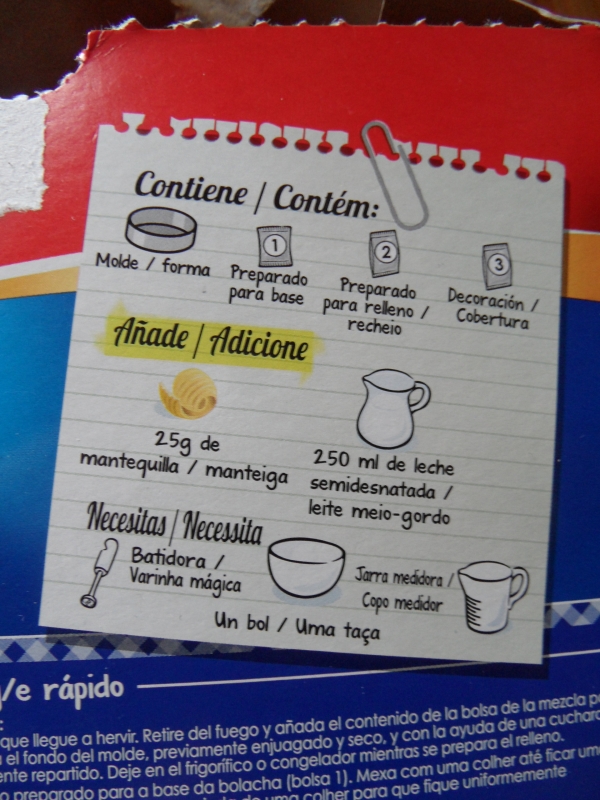 Contiene / Contém:
1
2
3
Molde / forma
Preparado
para base
Preparado
para relleno /
recheio
Decoración /
Cobertura
Añade / Adicione
25g de
mantequilla / manteiga
250 ml de leche
semidesnatada /
leite meio-gordo
Necesitas / Necessita
Batidora /
Varinha mágica
Jarra medidora /
Copo medidor
Un bol / Uma taça
/e rápido
que llegue a hervir. Retire del fuego y añada el contenido de la bolsa de la mezcla
el fondo del molde, previamente enjuagado y seco, y con la ayuda de una
repartido. Deje en el frigorífico o congelador mientras se prepara el relleno.
preparado para a base da bolacha (bolsa 1). Mexa com uma colher até ficar
uma colher para que fique uniformemente